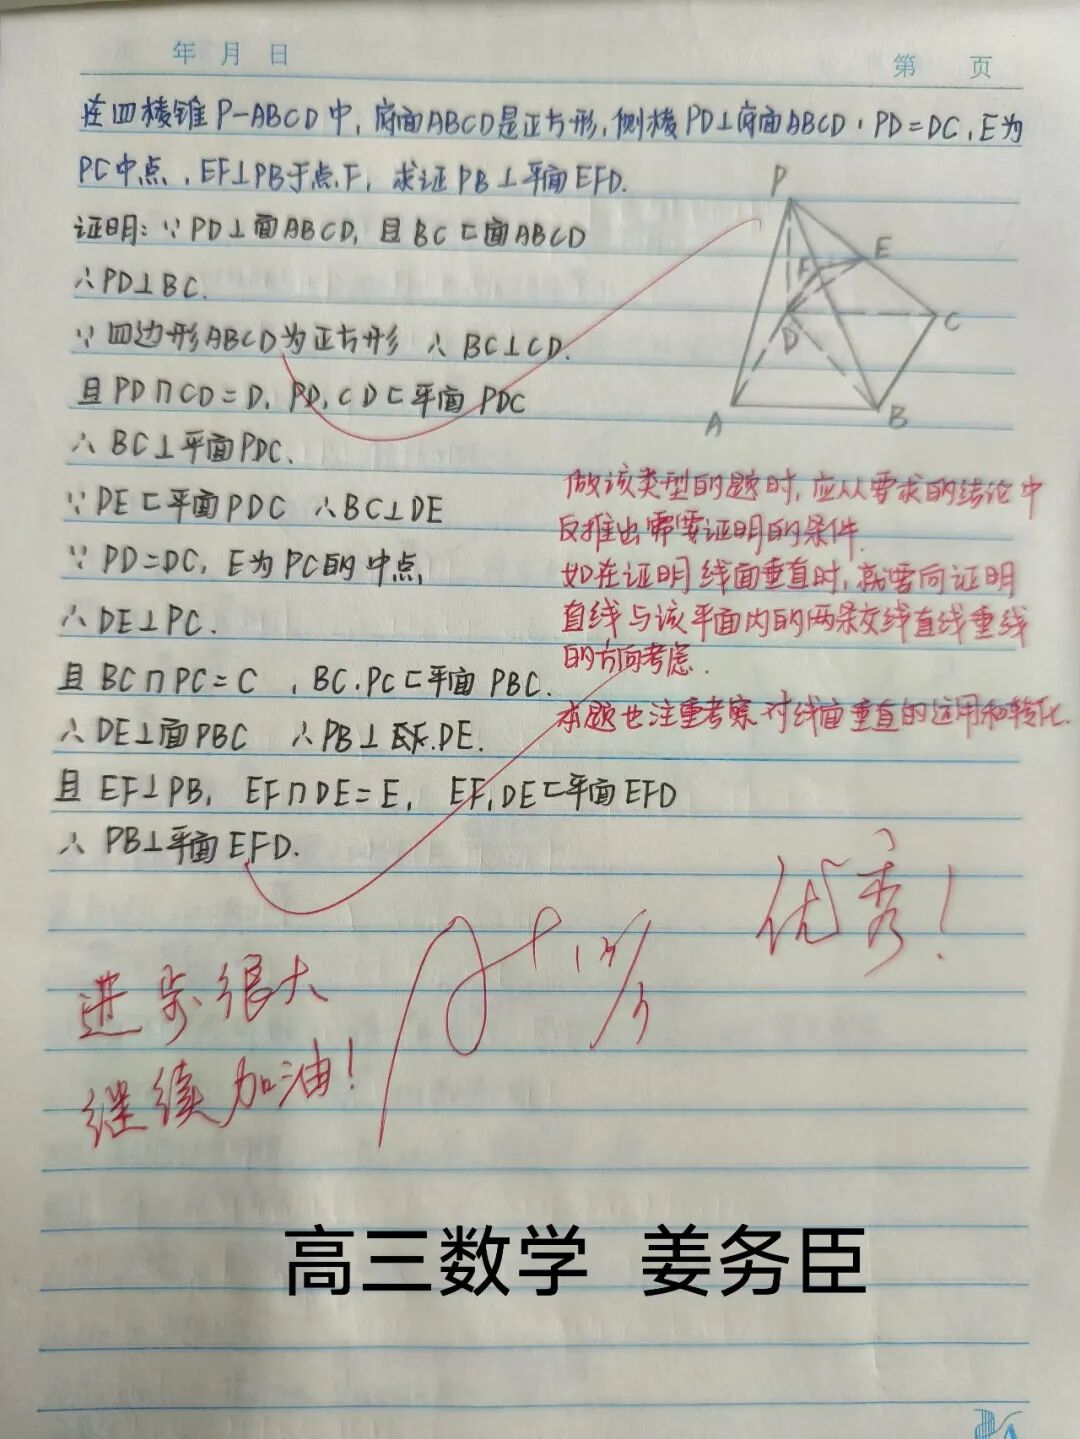 年 月 日
第 页
在四棱锥P-ABCD中,底面ABCD是正方形,侧棱PD⊥底面ABCD,PD=DC,E为
PC中点,EF⊥PB于点F,求证PB⊥平面EFD.
证明:∵PD⊥面ABCD,且BC⊂面ABCD
∴PD⊥BC.
∵四边形ABCD为正方形 ∴BC⊥CD.
且PD∩CD=D, PD,CD⊂平面PDC
∴BC⊥平面PDC.
∵DE⊂平面PDC ∴BC⊥DE
∵PD=DC, E为PC的中点,
∴DE⊥PC.
且BC∩PC=C ,BC.PC⊂平面PBC.
∴DE⊥面PBC ∴PB⊥DE.
且EF⊥PB, EF∩DE=E, EF,DE⊂平面EFD
∴PB⊥平面EFD.
P
E
F
D
C
A
B
做该类型的题时,应从要求的结论中
反推出需要证明的条件.
如在证明线面垂直时,就要向证明
直线与该平面内的两条交线直线垂线
的方向考虑.
本题也注重考察对线面垂直的运用和转化.
优秀!
进步很大
继续加油!
高三数学 姜务臣